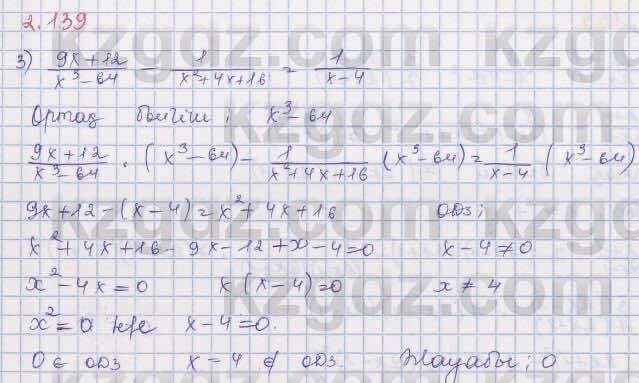 2.139
3) (9x+12)/(x³-64) - 1/(x²+4x+16) = 1/(x-4)
Ортақ бөлгіш; x³-64
(9x+12)/(x³-64) · (x³-64) - 1/(x²+4x+16) (x³-64) = 1/(x-4) (x³-64)
9x+12-(x-4)=x²+4x+16 ОДЗ;
x²+4x+16-9x-12+x-4=0 x-4≠0
x²-4x=0 x(x-4)=0 x≠4
x²=0 не x-4=0.
0∈ ОДЗ x=4 ∉ ОДЗ. Жауабы; 0
kzgdz.com